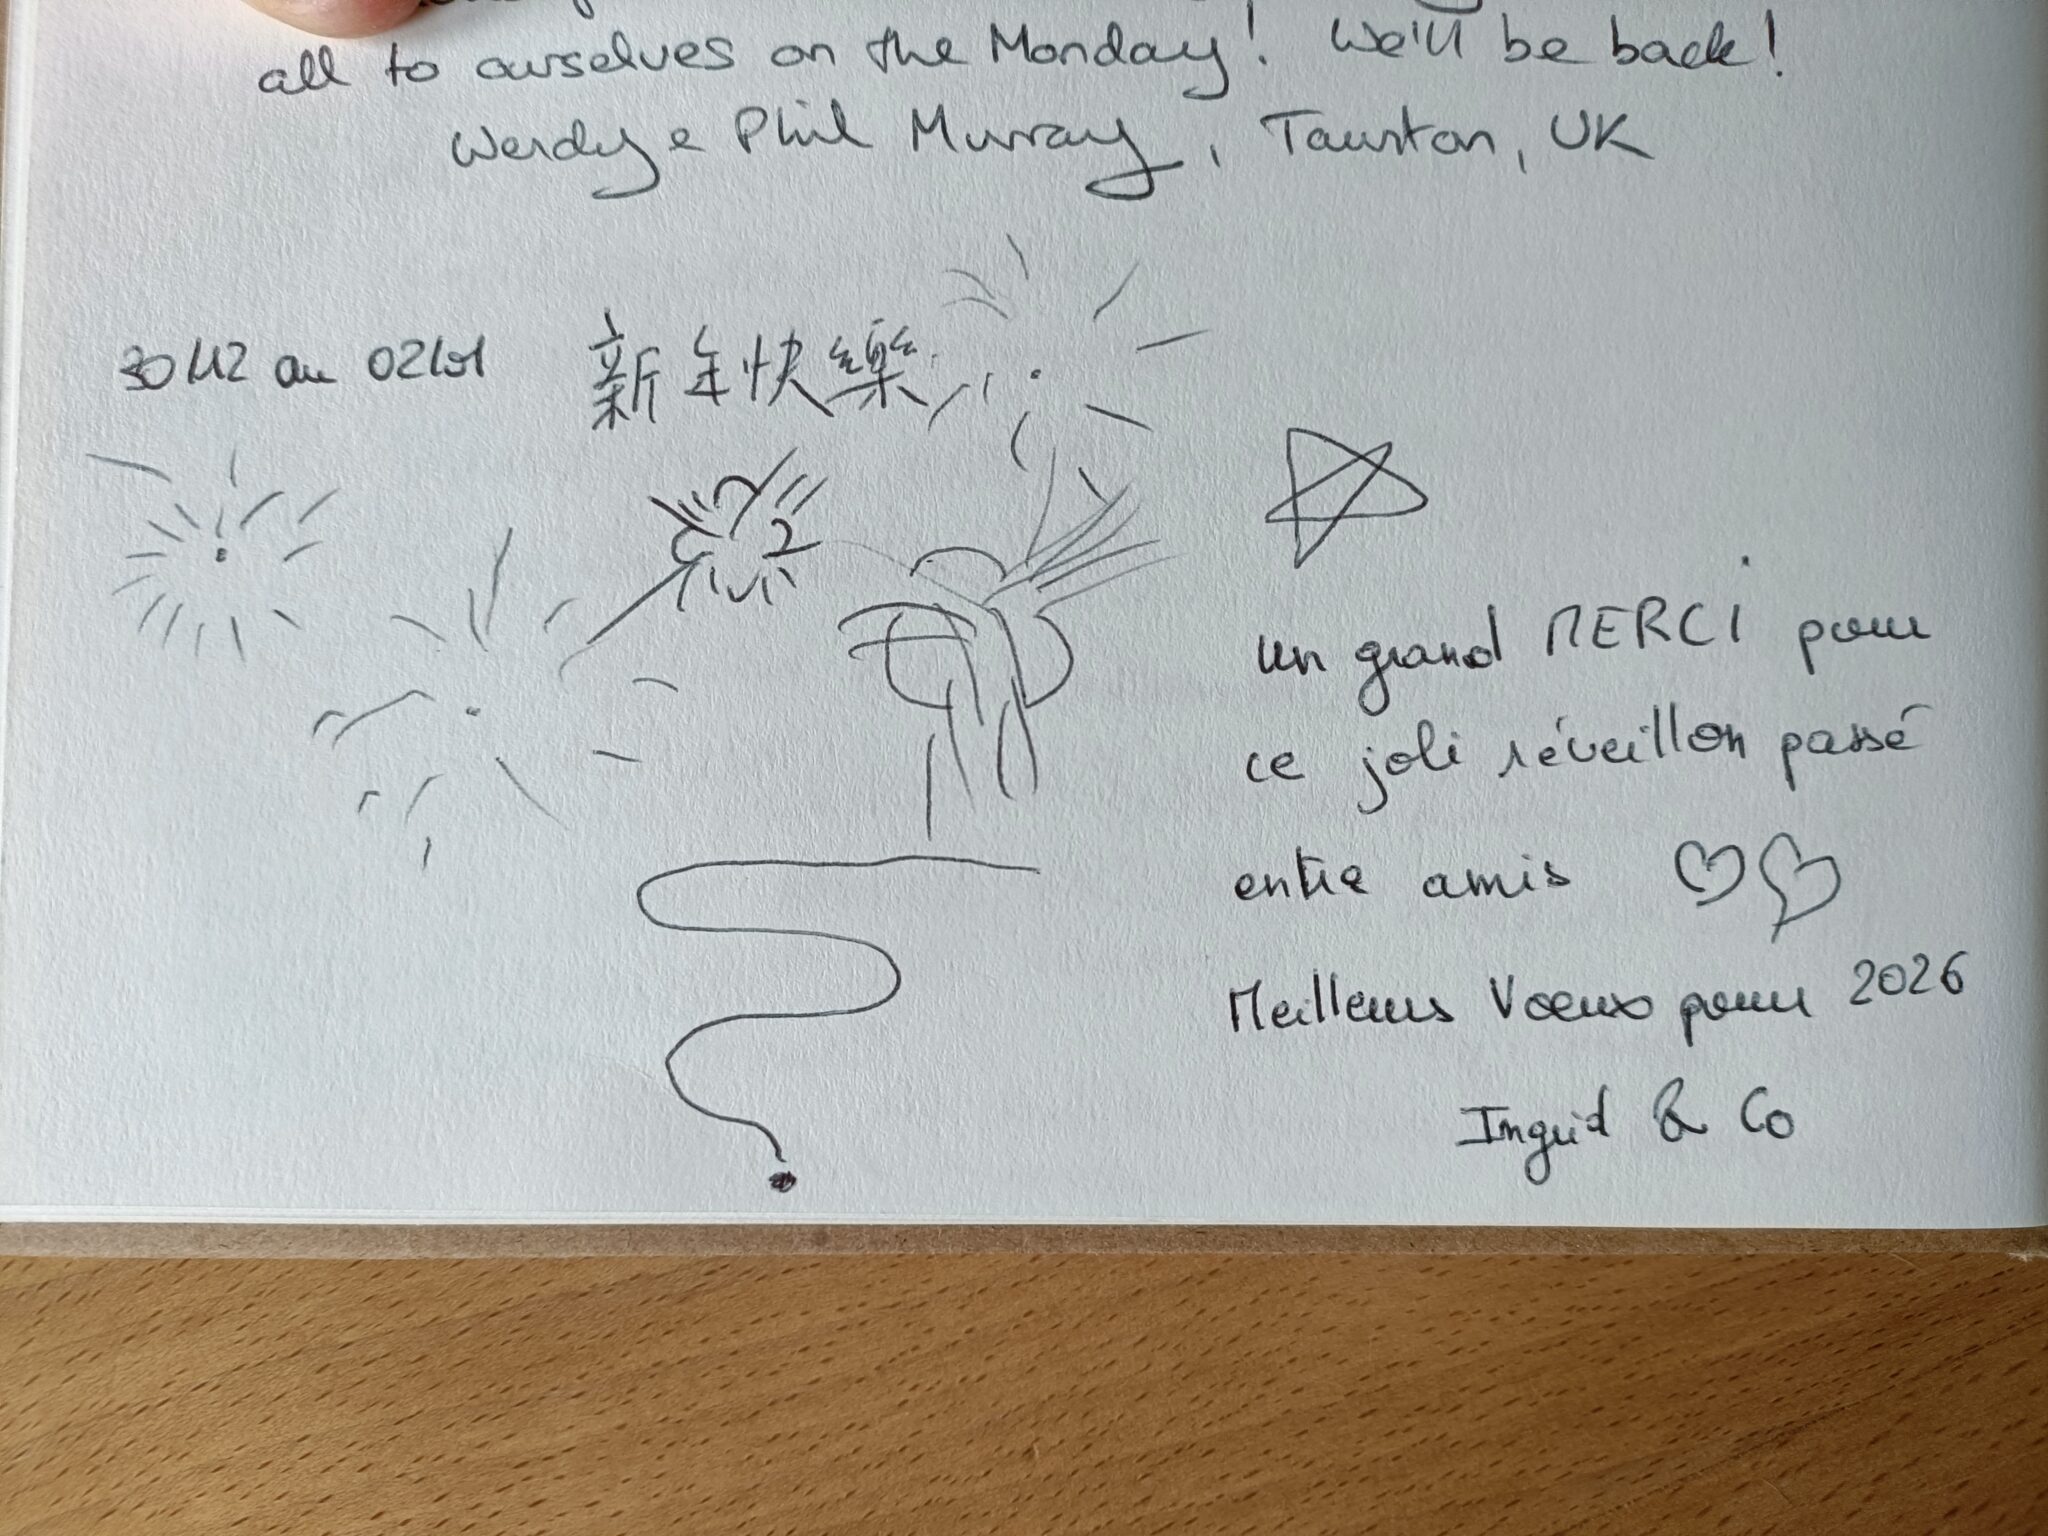 all to ourselves on the Monday! We'll be back!
Wendy & Phil Murray, Taunton, UK
30/12 au 02/01 新年快樂
un grand MERCI pour
ce joli réveillon passé
entre amis
Meilleurs Vœux pour 2026
Ingrid & Co